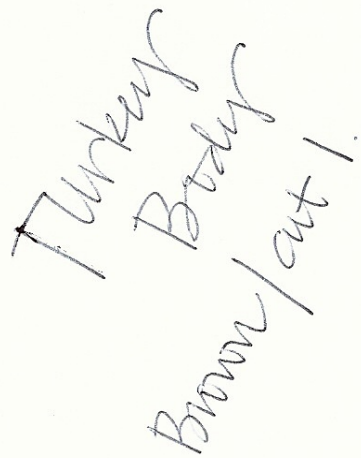 Turkey
Body
Brown/cut 1.